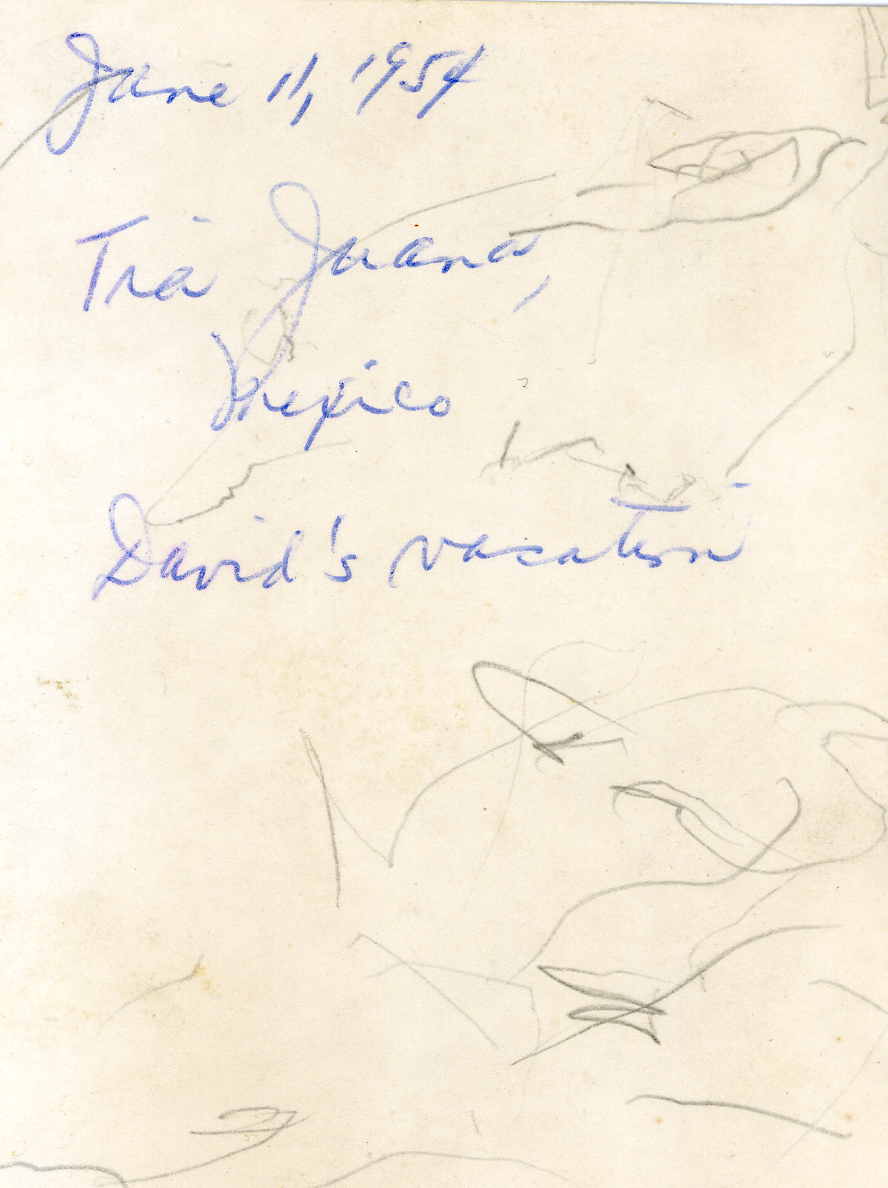 June 11, 1954
Tia Juana,
Mexico
David's vacation